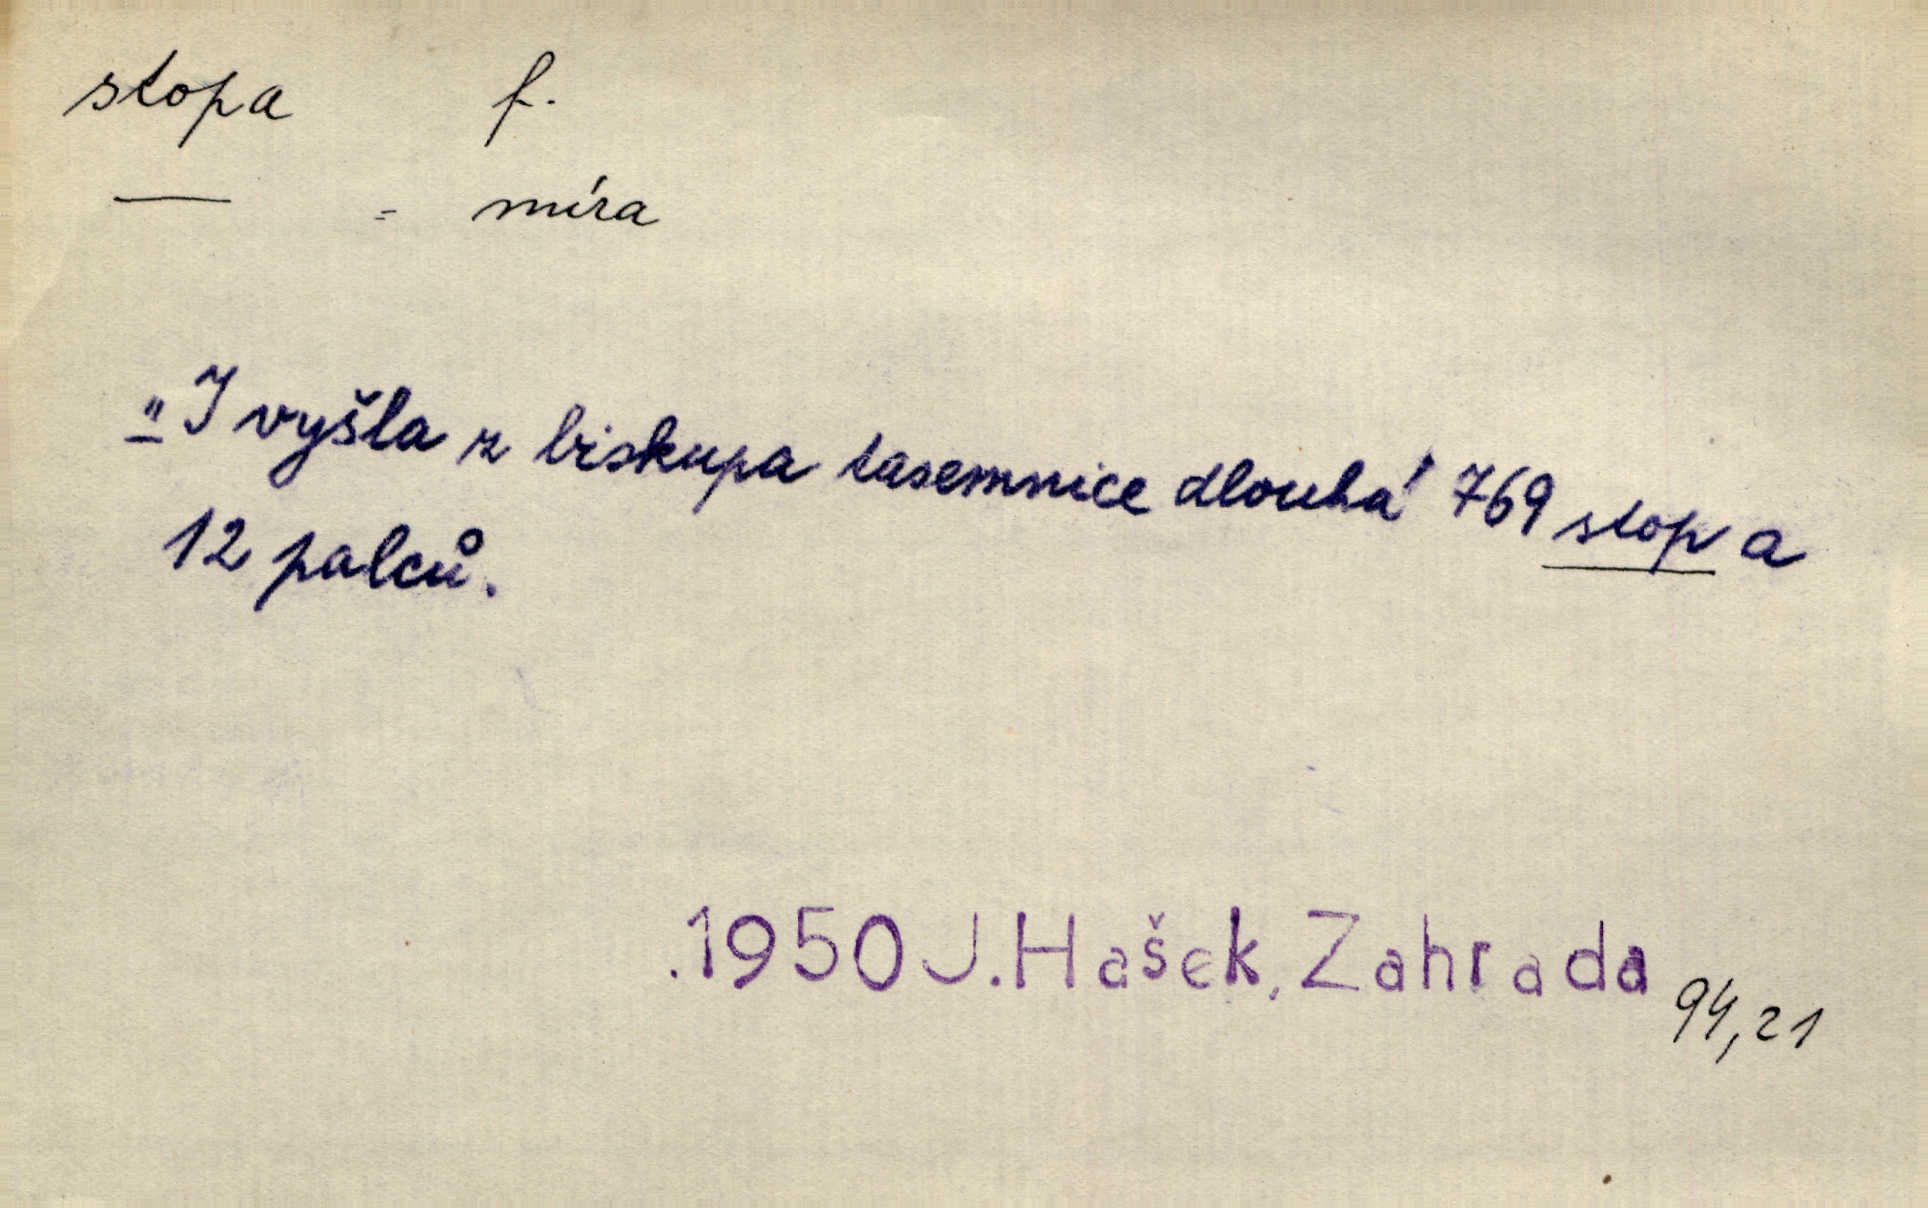 stopa f.
— = míra
"I vyšla z biskupa tasemnice dlouhá 769 stop a
12 palců.
.1950 J. Hašek, Zahrada 94,21